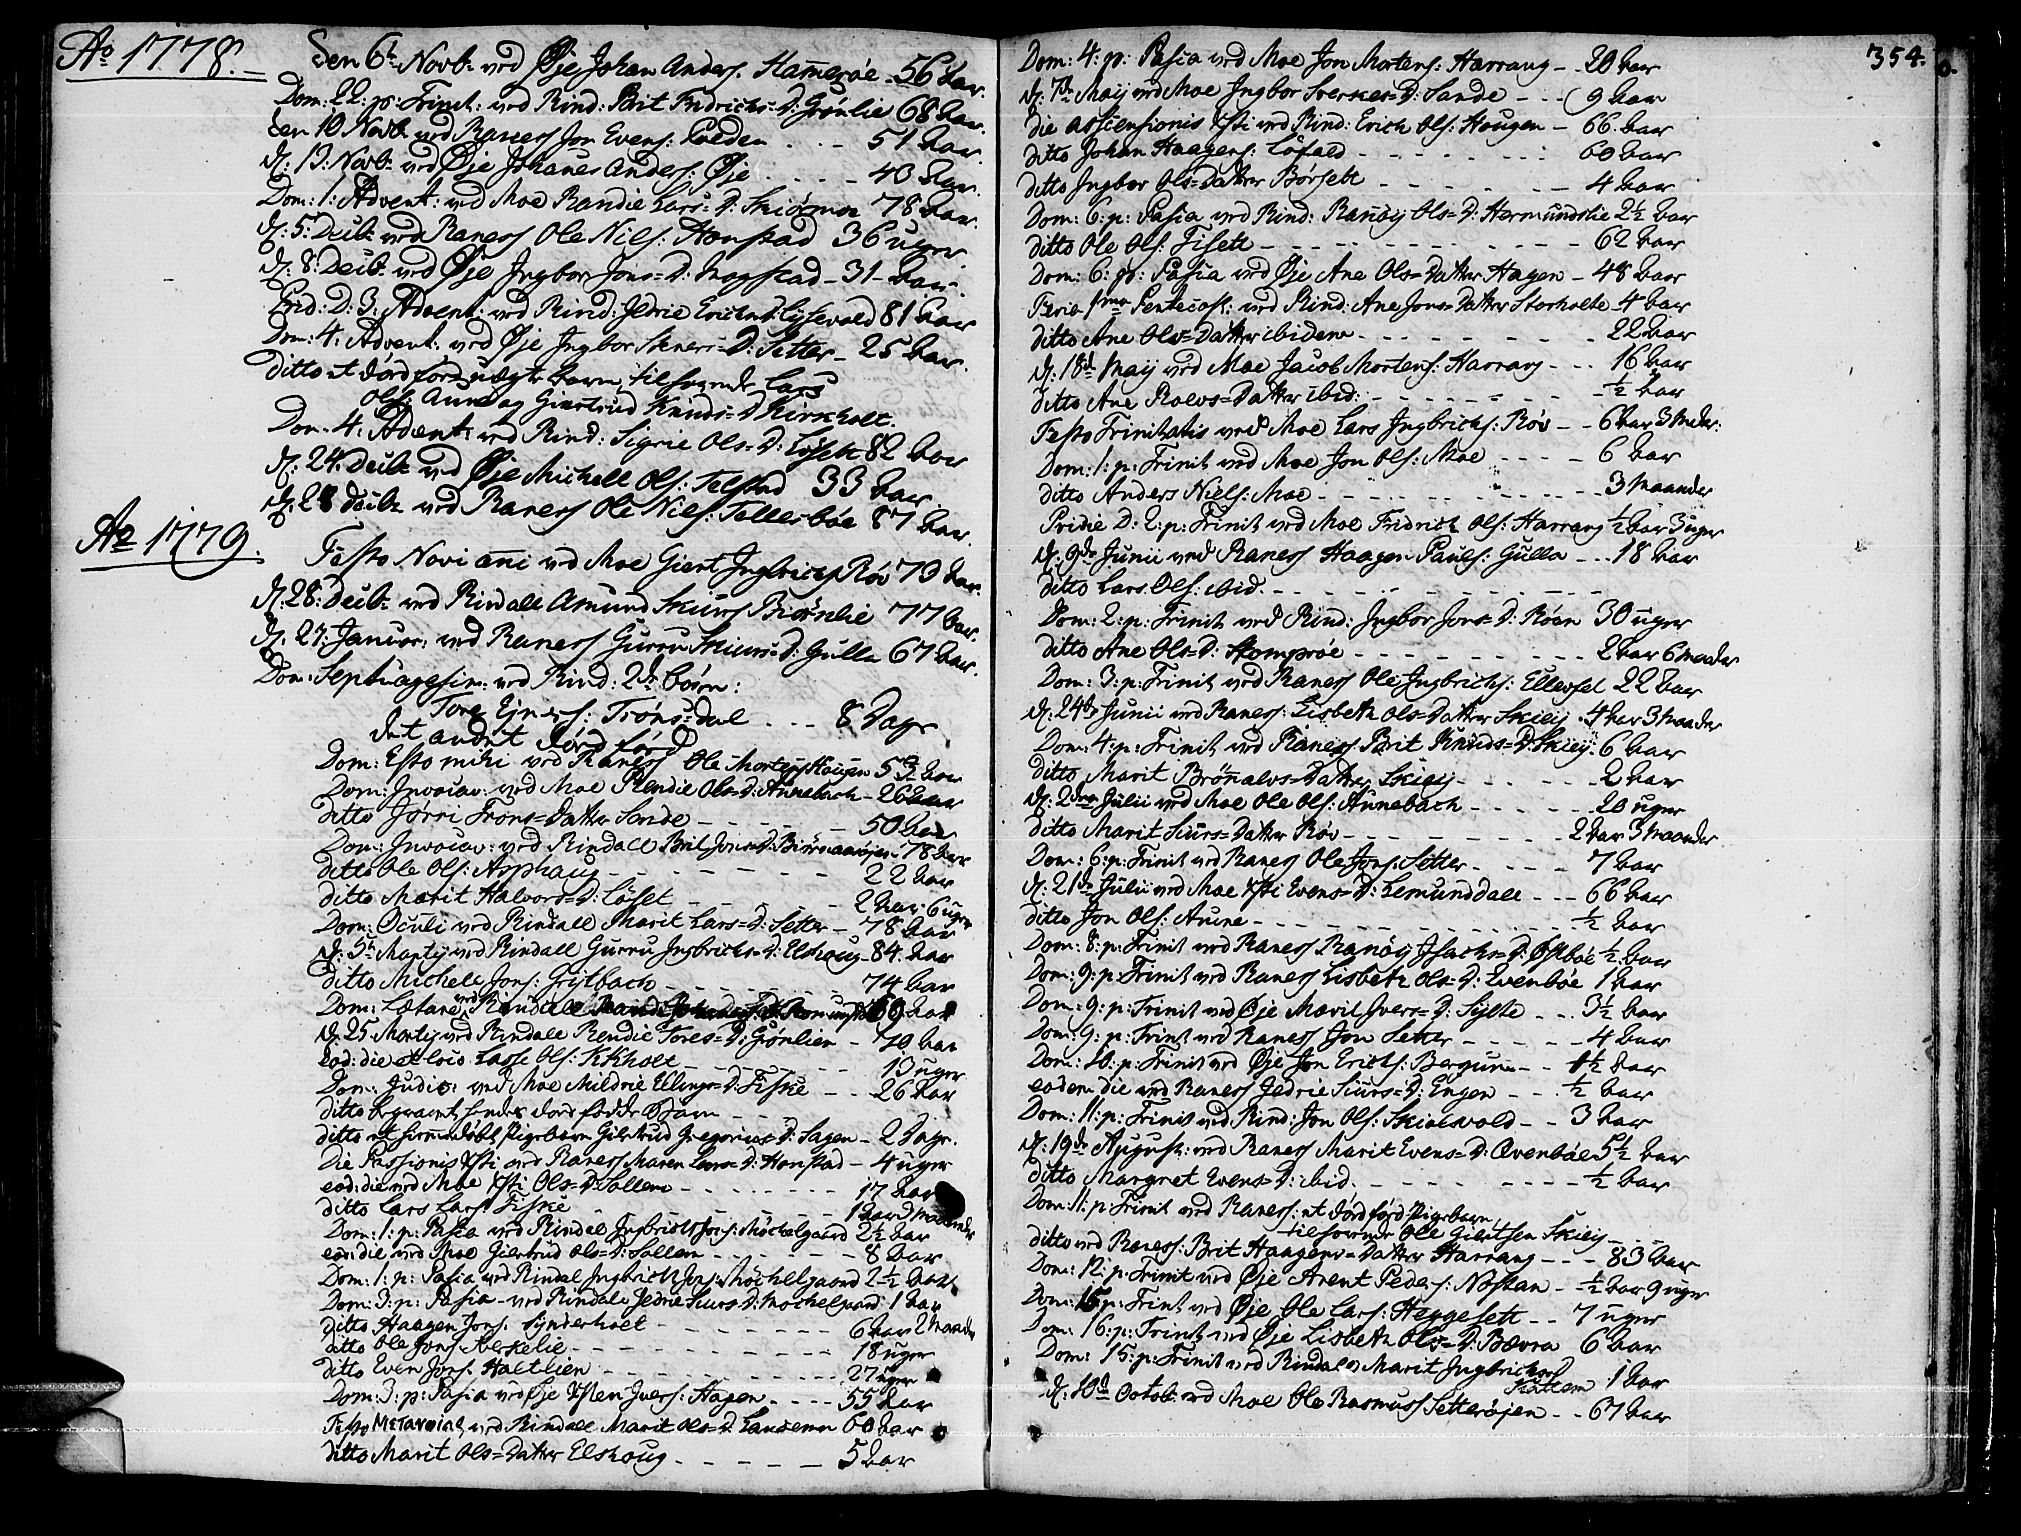 Ao 1778.
Den 6t Novb: ved Øje Johan Anders: Hamerøe - 56 Aar.
Dom: 22: p: Trinit: ved Rind: Brit Fridrichs=D: Grønlie 68 Aar.
Den 10 Novb: ved Raness Jon Evens: Polden - - - 51 Aar.
d: 13: Novb: ved Øje Johanes Anders: Øje - - - - 43 Aar.
Dom: 1: Advent: ved Moe Randie Lars=D: Skiørmoe 78 Aar.
d: 5t Decb: ved Raness Ole Nils: Honstad 36 uger
d: 8: Decb: ved Øje Ingbor Jons=D: Mogstad - 31 - Aar.
Prid: D: 3: Advent: ved Rind: Jedrie Erichs=D: 81 Aar
Dom: 4: Advent: ved Øje Ingbor D: Setter - 25 Aar.
Ditto et dødfød uægte barn tilhørende Lars
Ols: Aune og Giertrud Knuds=D Kirkholt.
Dom: 4: Advent: ved Rind: Sigrie Ols=D: Løseth 82 Aar
d: 24: Decb: ved Øje Michell Ols: Telstad 33 Aar
d: 28 Decb: ved Raness Ole Niels: Tellesbøe 87 Aar.
Ao 1779.
Festo Novi ani ved Moe Giert Ingbrichs Røv 73 Aar
d: 28: Decb: ved Rindall Amund Skiurs Biørnlie 77 Aar.
d: 27: Januar: ved Raness Gurru Skiurs=D: Gulla 67 Aar.
Dom: Septuagesim: ved Rind: 2de børn:
Tore Ejners: Trøns=dal - - - 8 Dage
det andet dødfød
Dom: Esto mihi ved Raness Ole Mortens Hougen 53 Aar
Dom: Invocav: ved Moe Rendie Ols=D: Aunebach - 26 Aar
Ditto Jørri Trons=Datter Sande - - - - - 50 Aar
Dom: Invocav: ved Rindall Brit Jons=D: - 78 Aar
ditto Ole Ols: Asphaug - - - - - - 22 Aar
ditto Marit Halvors=D: Løset - - - - 2 Aar: 6 uger
Dom: Oculi ved Rindall Marit Lars=D: Setter - 78 Aar
d: 5t Martij ved Rindall Gurru Ingbrichs=D: Elshoug - 84. Aar
ditto Michell Jons: Gritbach - - - - - - 74 Aar
Dom: Lætare ved Rindall
d: 25 Martij ved Rindall Rendie Tores=D: Grønlien - 70 Aar
eod: die Lasse Ols: Kirkholt - - - - - - 13 uger
Dom: Judica: ved Moe Mildrie Ellings=D: Fiske - - 26 Aar
ditto begravet hendes død fødde Barn - - -
ditto et hiemedøbt Pigebarn Giertrud Gregorius=D: Sagen - 2 Dage.
Die Passionis Xsti ved Raness Maren Lars=D: Honstad - 4 uger
eod: die ved Moe Xsti Ols=D: Sollem - - - - - - 17 Aar
ditto Lars Lars: Fiske - - - - - 1 Aar Maaneder
Dom: 1: p: Pasca ved Rindal Ingbricht Jons: Møchelgaard 2½ Aar
eod: die ved Moe Giertrud Ols=D: Sollem - - - - - - 8 Aar
Dom: 1: p: Pasca ved Rindal Ingbricht Jons: Møchelgaard 2-½ Aar
Dom: 3: p: Pasca - ved Rindale Jedrie Siurs=D: Mochelgaard 1 Aar
ditto Haagen Jons: Synderholt - - - - - - - 6 Aar 2 Maander
ditto Ole Jons: - - - - - - - - 18 uger
ditto Even Jons: Haltlien - - - - - - - - 27 uger
Dom: 3: p: Pasca ved Øje Xsten Ivers: Hagen - - - - 55 Aar
Festo Μετανοίας ved Rindall Marit Ols=D: 60 Aar
ditto Marit Ols=Datter Elshoug - - - - - 5 Aar
354.
Dom: 4: p: Pasca ved Moe Jon Mortens: Harrang - - 20 Aar
d: 7de Maij ved Moe Ingbor Sverkes=D: Sande - - - 9 Aar
die asscensionis Xsti ved Rind: Erich Ols: Hougen - 66. Aar
ditto Johan Haagens: Løfald - - - - - - - 60 Aar
ditto Ingbor Ols=Datter Børseth - - - - - - 4 Aar
Dom: 6: p: Pasca ved Rind: Ranøy Ols=D: Hermundslie 2½ Aar
ditto Ole Ols: Fiseth - - - - - - - - - 62 Aar
Dom: 6: p: Pasca ved Øje Ane Ols=Datter Hagen - 48 Aar
Feria 1ma Pentecost: ved Rind: Ane Jons=Datter Storholte 4 Aar
ditto Ane Ols=Datter ibidem - - - - - - - - 22 Aar
d: 18de Maij ved Moe Jacob Mortens: Harrang - - - 16 Aar
ditto Ane Roers=Datter ibid: - - - - - - - ½ Aar
Festo Trinitatis ved Moe Lars Ingbrichs: Røv - - 6 Aar 3 Mnder:
Dom: 1: p: Trinit ved Moe Jon Ols: Moe - - - - 6 Aar
ditto Anders Niels: Moe - - - - - - - - - 3 Maander
Pridie D: 2: p: Trinit ved Moe Fridrich Ols: Harrang ½ Aar 3 uger
d: 9de Junii ved Raness Haagen Pauls: Gulla - - - 18 Aar
ditto Lars Ols: ibid. - - - - - - - - - -
Dom: 2: p: Trinit ved Rind: Ingbor Jons=D: Røen 30 uger
ditto Ane Ols=D: Skomprøe - - - - - - - - 2 Aar 6 Maader
Dom: 3: p: Trinit ved Raness Ole Ingbrichs: Ellevset 22 Aar
d: 24de Junii ved Raness: Lisbeth Ols=Datter Skieij - 4 Aar 3 Maander
Dom: 4: p: Trinit ved Raness Brit Knuds=D: Skieij 6 Aar
ditto Marit Brønalvs=Datter Skieij - - - - - 2 Aar
d: 2den Julii ved Moe Ole Ols: Aunebach - - - - - 20 uger
ditto Marit Siurs=Datter Røv - - - - - - - - 2 Aar 3 Maander
Dom: 6: p: Trinit ved Raness Ole Jons: Setter - - - - 7 Aar
d: 21de Julii ved Moe Xsti Evens=D: Lemunddale - - - 66 Aar
ditto Jon Ols: Aune - - - - - - - - - - - ½ Aar
Dom: 8: p: Trinit ved Raness Ranøy Isachs=D: Østbøe ½ Aar
Dom: 9: p: Trinit ved Raness Lisbeth Ols=D: Evenbøe 1 Aar
Dom: 9: p: Trinit ved Øje Marit Ivers=D: Sylte - - - 3½ Aar
Dom: 9: p: Trinit ved Raness Jon Setter - - - - - 4 Aar
Dom: 10: p: Trinit ved Øje Jon Erichs: Bergune - - 1½ Aar
eodem die ved Raness Jedrie Siurs=D: Engen - - - ½ Aar
Dom: 11: p: Trinit ved Rind: Jon Ols: Skialvold - - 3 Aar
d: 19de August: ved Raness Marit Evens=D: Qvenbøe 5½ Aar
ditto Margret Evens=D: ibid. - - - - - - - - ½ Aar
Dom: 11: p: Trinit ved Raness: et dødfød Pigebarn
tilhørende Ole Giertsen Skieij - - -
ditto ved Raness: Brit Haagens=Datter Harrang - - - 83 Aar
Dom: 12: p: Trinit ved Øje Arent Peders: Nostan - ½ Aar 9 uger
Dom: 15 p: Trint ved Øje Ole Lars: Heggeseth - - 7 uger
Dom: 16: p: Trinit ved Øje Lisbeth Ols=D: Bævra 6 Aar
Dom: 15: p: Trinit ved Rindale Marit Ingbrichs=D 1 Aar
d: 10de Octob: ved Moe Ole Rasmuss Setterøjen - - 67 Aar